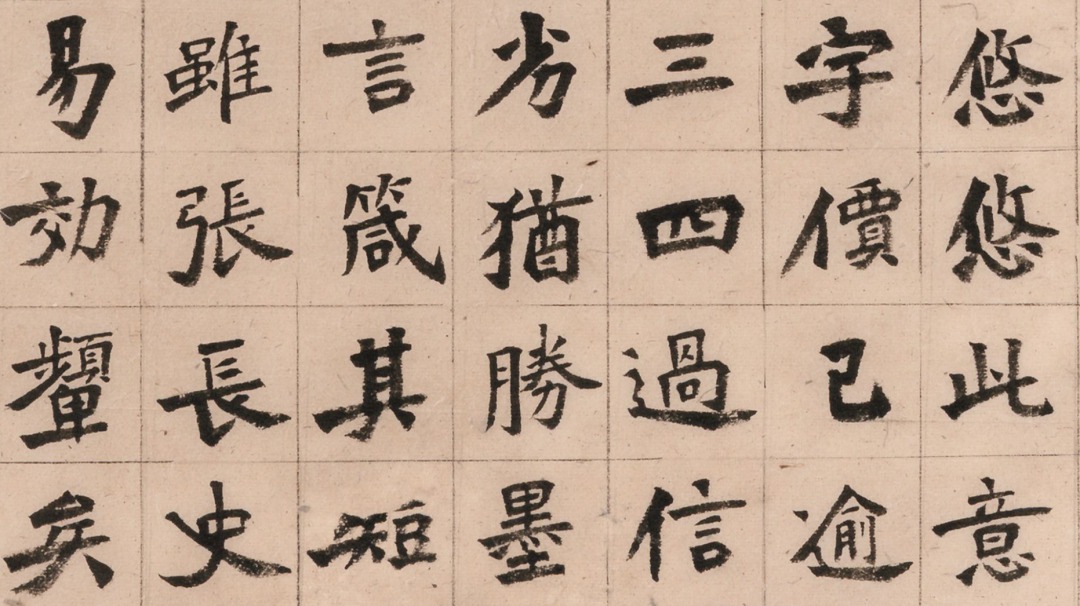 悠悠此意
字價已逾
三四過信
劣猶勝墨
言箴其短
雖張長史
易効顰矣